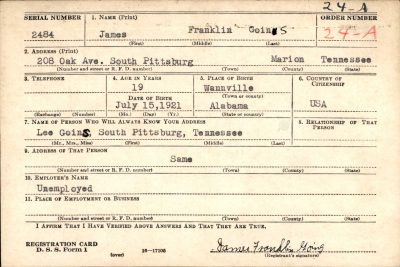 24-A
SERIAL NUMBER 1. NAME (Print) ORDER NUMBER
2484 James Franklin Goins 24-A
(First) (Middle) (Last)
2. ADDRESS (Print)
208 Oak Ave. South Pittsburg Marion Tennessee
(Number and street or R. F. D. number) (Town) (County) (State)
3. TELEPHONE 4. AGE IN YEARS 5. PLACE OF BIRTH 6. COUNTRY OF CITIZENSHIP
19 Wannville
DATE OF BIRTH (Town or county)
July 15,1921 Alabama USA
(Exchange) (Number) (Mo.) (Day) (Yr.) (State or country)
7. NAME OF PERSON WHO WILL ALWAYS KNOW YOUR ADDRESS 8. RELATIONSHIP OF THAT PERSON
Lee Goins South Pittsburg, Tennessee
(Mr., Mrs., Miss) (First) (Middle) (Last)
9. ADDRESS OF THAT PERSON
Same
(Number and street or R. F. D. number) (Town) (County) (State)
10. EMPLOYER'S NAME
Unemployed
11. PLACE OF EMPLOYMENT OR BUSINESS
(Number and street or R. F. D. number) (Town) (County) (State)
I AFFIRM THAT I HAVE VERIFIED ABOVE ANSWERS AND THAT THEY ARE TRUE.
REGISTRATION CARD
D. S. S. Form 1 (over) 16—17105
James Franklin
(Registrant's signature)